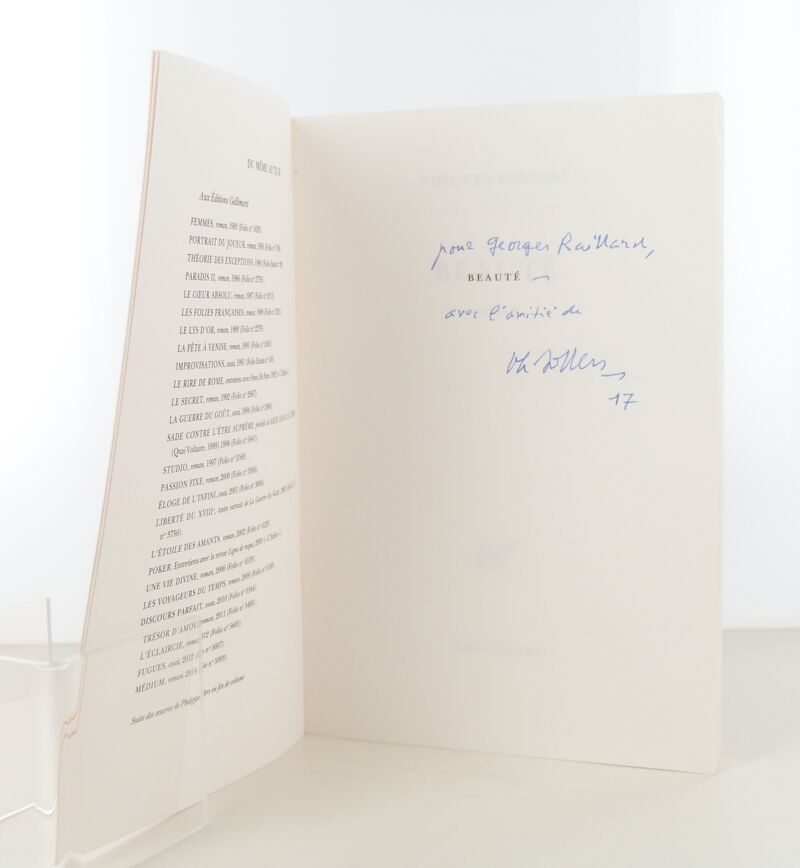 DU MÊME AUTEUR
Aux Éditions Gallimard
FEMMES, roman, 1983 (Folio n° 1620).
PORTRAIT DU JOUEUR, roman, 1985 (Folio n°
THÉORIE DES EXCEPTIONS, 1986 (Folio
PARADIS II, roman, 1986 (Folio n° 2759).
LE CŒUR ABSOLU, roman, 1987 (Folio n° 2013).
LES FOLIES FRANÇAISES, roman, 1988 (Folio n°
LE LYS D'OR, roman, 1989 (Folio n° 2279).
LA FÊTE À VENISE, roman, 1991 (Folio n° 2463).
IMPROVISATIONS, essai, 1991 (Folio Essais n° 165).
LE RIRE DE ROME, entretiens avec Frans De Haes, 1992 (« L'Infini »).
LE SECRET, roman, 1992 (Folio n° 2687).
LA GUERRE DU GOÛT, essai, 1994 (Folio n° 2880).
SADE CONTRE L'ÊTRE SUPRÊME précédé de
(Quai Voltaire, 1989) 1996 (Folio n° 5841).
STUDIO, roman, 1997 (Folio n° 3168).
PASSION FIXE, roman, 2000 (Folio n° 3566).
ÉLOGE DE L'INFINI, essai, 2001 (Folio n° 3806).
LIBERTÉ DU XVIIIe, textes extraits de La Guerre du Goût, 2002
n° 3756).
L'ÉTOILE DES AMANTS, roman, 2002 (Folio n° 4120).
POKER. Entretiens avec la revue Ligne de risque, 2005 (« L'Infini »).
UNE VIE DIVINE, roman, 2006 (Folio n° 4533).
LES VOYAGEURS DU TEMPS, roman, 2009 (Folio n° 5182).
DISCOURS PARFAIT, essai, 2010 (Folio n° 5344).
TRÉSOR D'AMOUR, roman, 2011 (Folio n° 5485).
L'ÉCLAIRCIE, roman, 2012 (Folio n° 5605).
FUGUES, essai, 2012 (Folio n° 5697).
MÉDIUM, roman, 2014 (Folio n° 5993).
Suite des œuvres de Philippe Sollers en fin de volume
pour Georges Raillard,
BEAUTÉ
avec l'amitié de
Ph Sollers
17